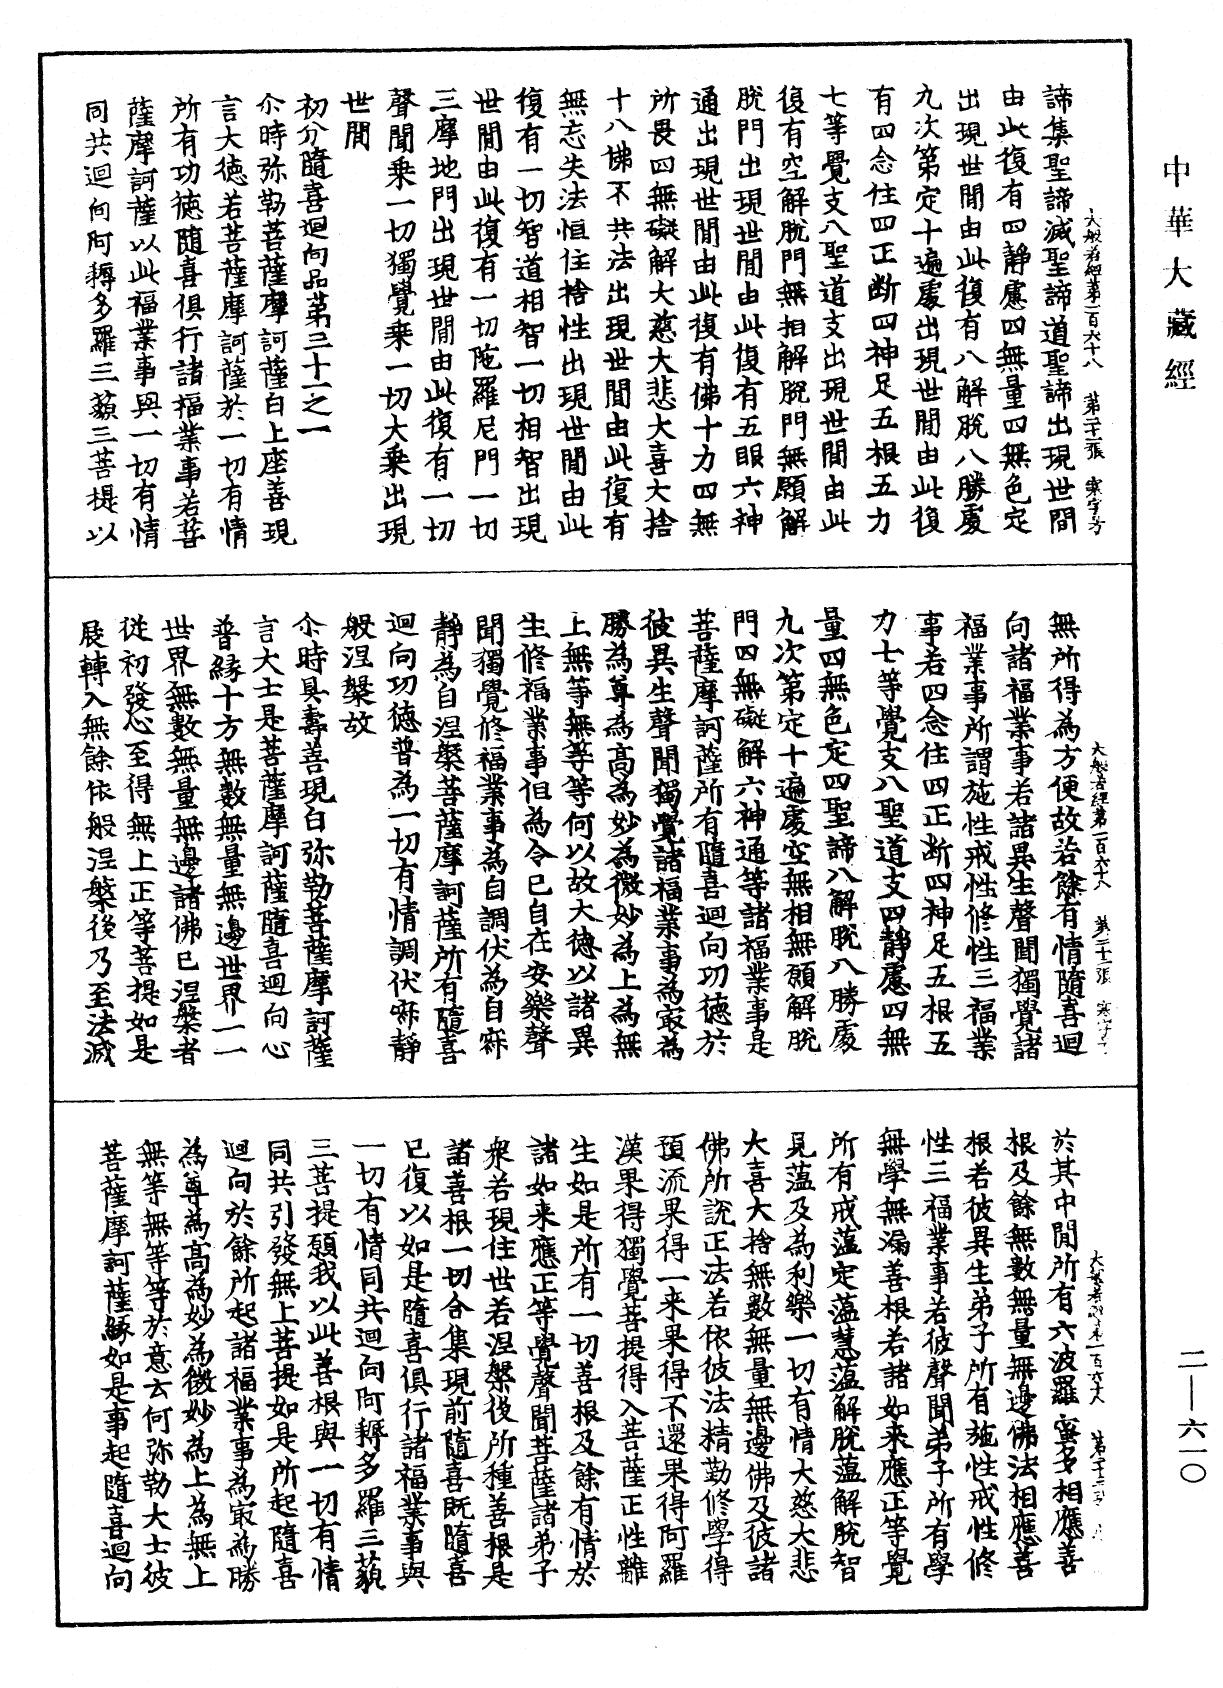 中華大藏經
大般若經第一百六十八 第二十張 寒字号
諦集聖諦滅聖諦道聖諦出現世間
由此復有四靜慮四無量四無色定
出現世間由此復有八解脫八勝處
九次第定十遍處出現世間由此復
有四念住四正斷四神足五根五力
七等覺支八聖道支出現世間由此
復有空解脫門無相解脫門無願解
脫門出現世間由此復有五眼六神
通出現世間由此復有佛十力四無
所畏四無礙解大慈大悲大喜大捨
十八佛不共法出現世間由此復有
無忘失法恒住捨性出現世間由此
復有一切智道相智一切相智出現
世間由此復有一切陁羅尼門一切
三摩地門出現世間由此復有一切
聲聞乘一切獨覺乘一切大乘出現
世間
初分隨喜迴向品第三十一之一
尒時弥勒菩薩摩訶薩白上座善現
言大德若菩薩摩訶薩於一切有情
所有功德隨喜俱行諸福業事若菩
薩摩訶薩以此福業事與一切有情
同共迴向阿耨多羅三藐三菩提以
大般若經第一百六十八 第二十一張 寒字号
無所得為方便故若餘有情隨喜迴
向諸福業事若諸異生聲聞獨覺諸
福業事所謂施性戒性修性三福業
事若四念住四正斷四神足五根五
力七等覺支八聖道支四靜慮四無
量四無色定四聖諦八解脫八勝處
九次第定十遍處空無相無願解脫
門四無礙解六神通等諸福業事是
菩薩摩訶薩所有隨喜迴向功德於
彼異生聲聞獨覺諸福業事為寂為
勝為尊為高為妙為微妙為上為無
上無等無等等何以故大德以諸異
生修福業事但為令己自在安樂聲
聞獨覺修福業事為自調伏為自寂
靜為自涅槃菩薩摩訶薩所有隨喜
迴向功德普為一切有情調伏寂靜
般涅槃故
尒時具壽善現白弥勒菩薩摩訶薩
言大士是菩薩摩訶薩隨喜迴向心
普緣十方無數無量無邊世界一一
世界無數無量無邊諸佛已涅槃者
從初發心至得無上正等菩提如是
展轉入無餘依般涅槃後乃至法滅
於其中間所有六波羅蜜多相應善
根及餘無數無量無邊佛法相應善
根若彼異生弟子所有施性戒性修
性三福業事若彼聲聞弟子所有學
無學無漏善根若諸如來應正等覺
所有戒蘊定蘊慧蘊解脫蘊解脫智
見蘊及為利樂一切有情大慈大悲
大喜大捨無數無量無邊佛及彼諸
佛所說正法若依彼法精勤修學得
預流果得一來果得不還果得阿羅
漢果得獨覺菩提得入菩薩正性離
生如是所有一切善根及餘有情於
諸如來應正等覺聲聞菩薩諸弟子
衆若現住世若涅槃後所種善根是
諸善根一切合集現前隨喜既隨喜
已復以如是隨喜俱行諸福業事與
一切有情同共迴向阿耨多羅三藐
三菩提願我以此善根與一切有情
同共引發無上菩提如是所起隨喜
迴向於餘所起諸福業事為寂為勝
為尊為高為妙為微妙為上為無上
無等無等等於意云何弥勒大士彼
菩薩摩訶薩緣如是事起隨喜迴向
二—六一〇